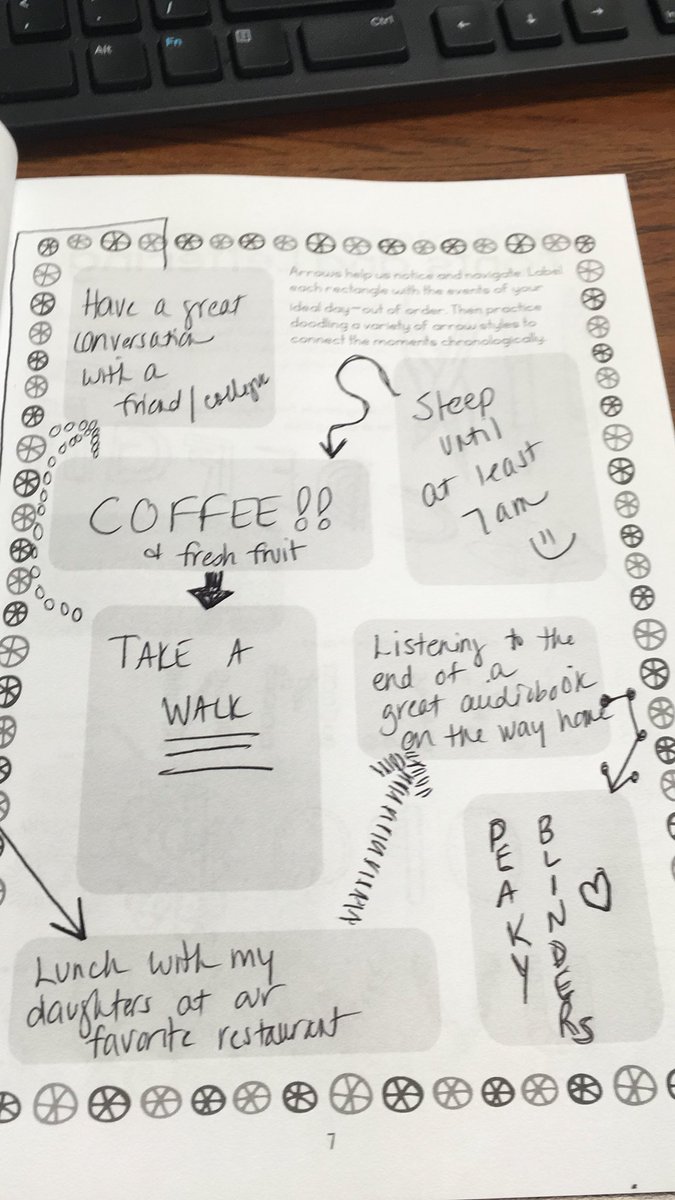 Ctrl
Alt
Fn
Arrows help us notice and navigate. Label
each rectangle with the events of your
ideal day—out of order. Then practice
doodling a variety of arrow styles to
connect the moments chronologically.
Have a great
conversation
with a
friend/
Sleep
until
at least
7am
COFFEE!!
& fresh fruit
TAKE A
WALK
Listening to the
end of a
great audiobook
on the way home
PEAKY
BLINDERS
Lunch with my
daughters at our
favorite restaurant
7